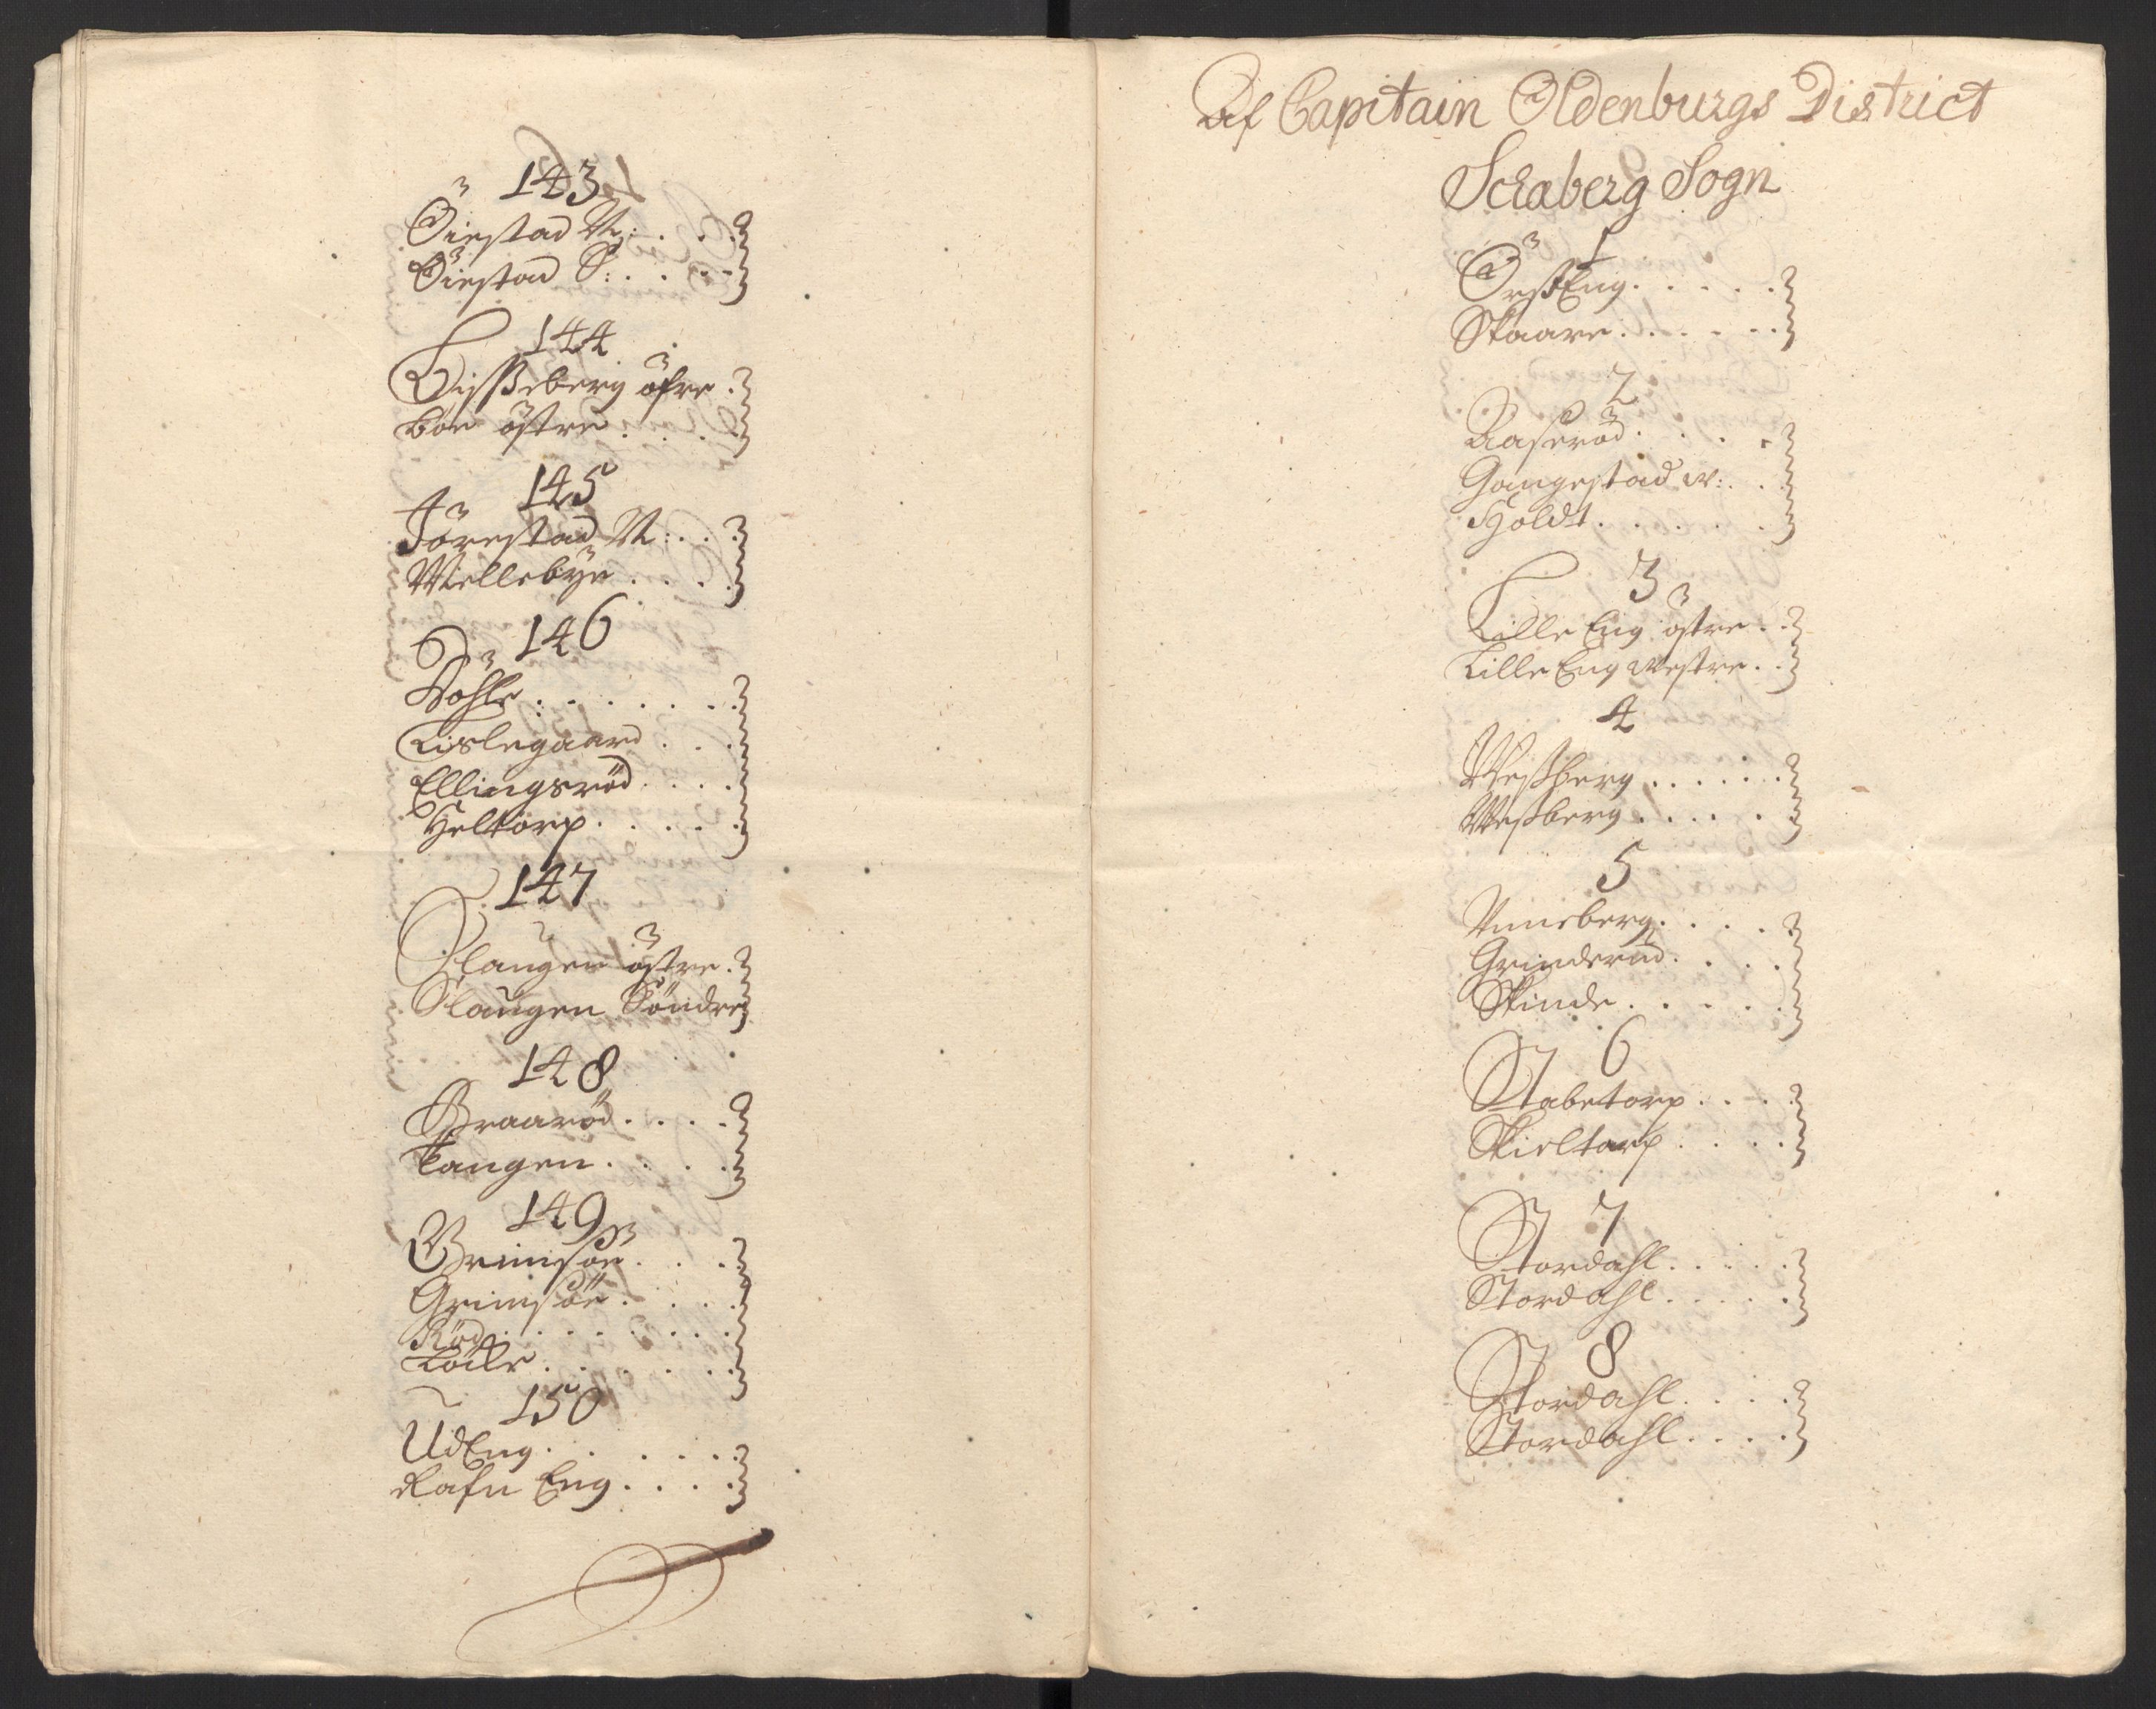 143
Öiestad N: . . . .
Öiestad S: . . . .
144
Vißeberg öfre .
Böe östre . . . .
145
Jörestad N: . . .
Mellebÿe . . . .
146
Döhle . . . . . . .
Lislegaard . . .
Ellingsröd . . . .
Heltorp . . . . .
147
Slangen östre .
Slaŭgen Söndre
148
Braaröd . . . .
Tangen . . . .
149
Grimsöe . . . .
Grimsöe . . . .
Röd . . . . . . .
Löcke . . . . . .
150
UdEng . . . . . .
Rafn Eng . . . .
Af Capitain Oldenburgs District
Schaberg Sogn
1
ÖrstEng . . . . .
Skaare . . . . . .
2
Aaseröd . . . .
Gangestad w: . .
Holdt . . . . . .
3
Lille Eng östre . .
Lille Eng westre . .
4
Weßberg . . . . . .
Weßberg . . . . . .
5
Unneberg . . . . .
Grinderöd . . . .
Skinde . . . . .
6
Stabetorp . . . .
Skieltorp . . . .
7
Stordahl . . . . .
Stordahl . . . . .
8
Stordahl . . . .
Stordahl . . . .